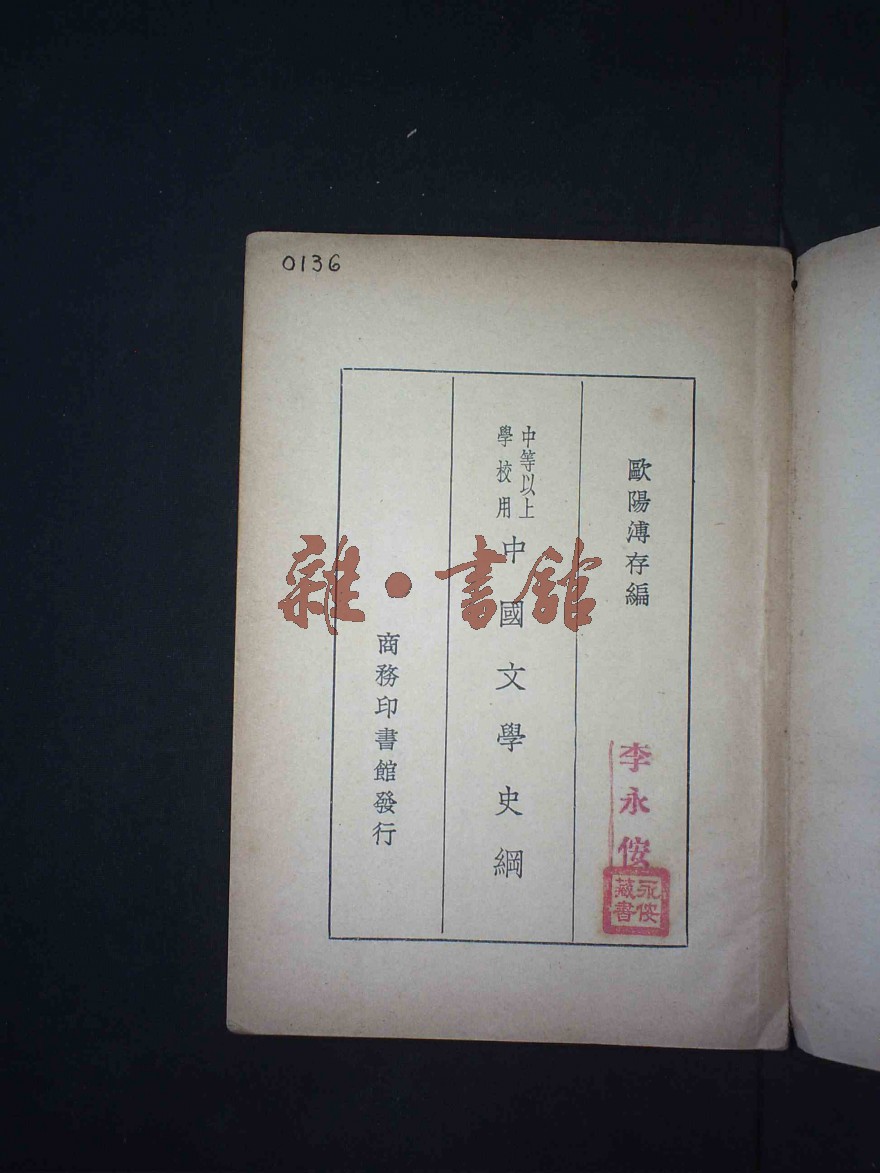 0136
歐陽溥存編
中等以上
學校用
中國文學史綱
商務印書館發行
李永侒
永侒
藏書
雜·書館